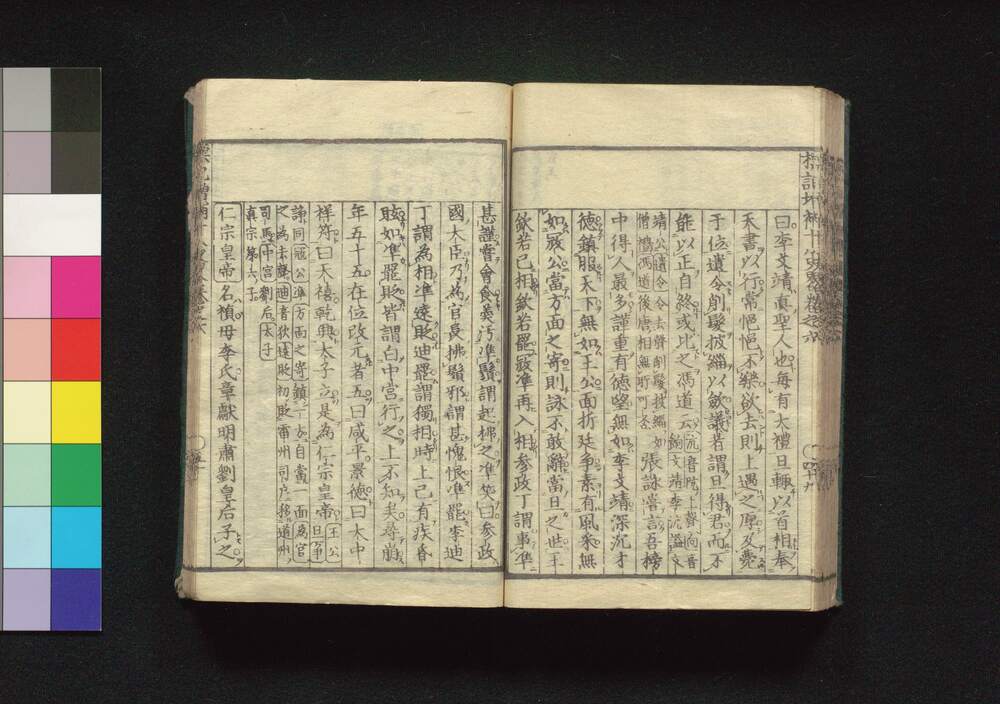 標記増補十八史略卷之六
曰李文靖真聖人也每有大禮旦輙以首相奉
天書以行常悒悒不樂欲去則上遇之厚及薨
于位遺令削髮披緇以斂議者謂旦得君而不
能以正自終或比之馮道云
張詠嘗言吾榜
中得人最多謹重有德望無如李文靖深沉才
德鎮服天下無如王公面折廷爭素有風采無
如寇公當方面之寄則詠不敢辭當日之世王
欽若已相欽若罷寇準再入相參政丁謂事準
甚謹嘗會食羹汚準鬚謂起拂之準笑曰參政
國大臣乃為官長拂鬚邪謂甚愧恨準罷李迪
丁謂為相準遠貶迪罷謂獨相時上已有疾昏
眩如準罷貶皆謂白中宮行之上不知矣尋崩
年五十五在位改元者五曰咸平景德曰大中
祥符曰天禧乾興太子立是為仁宗皇帝
真宗第六子
仁宗皇帝名禎母李氏章獻明肅劉皇后子之